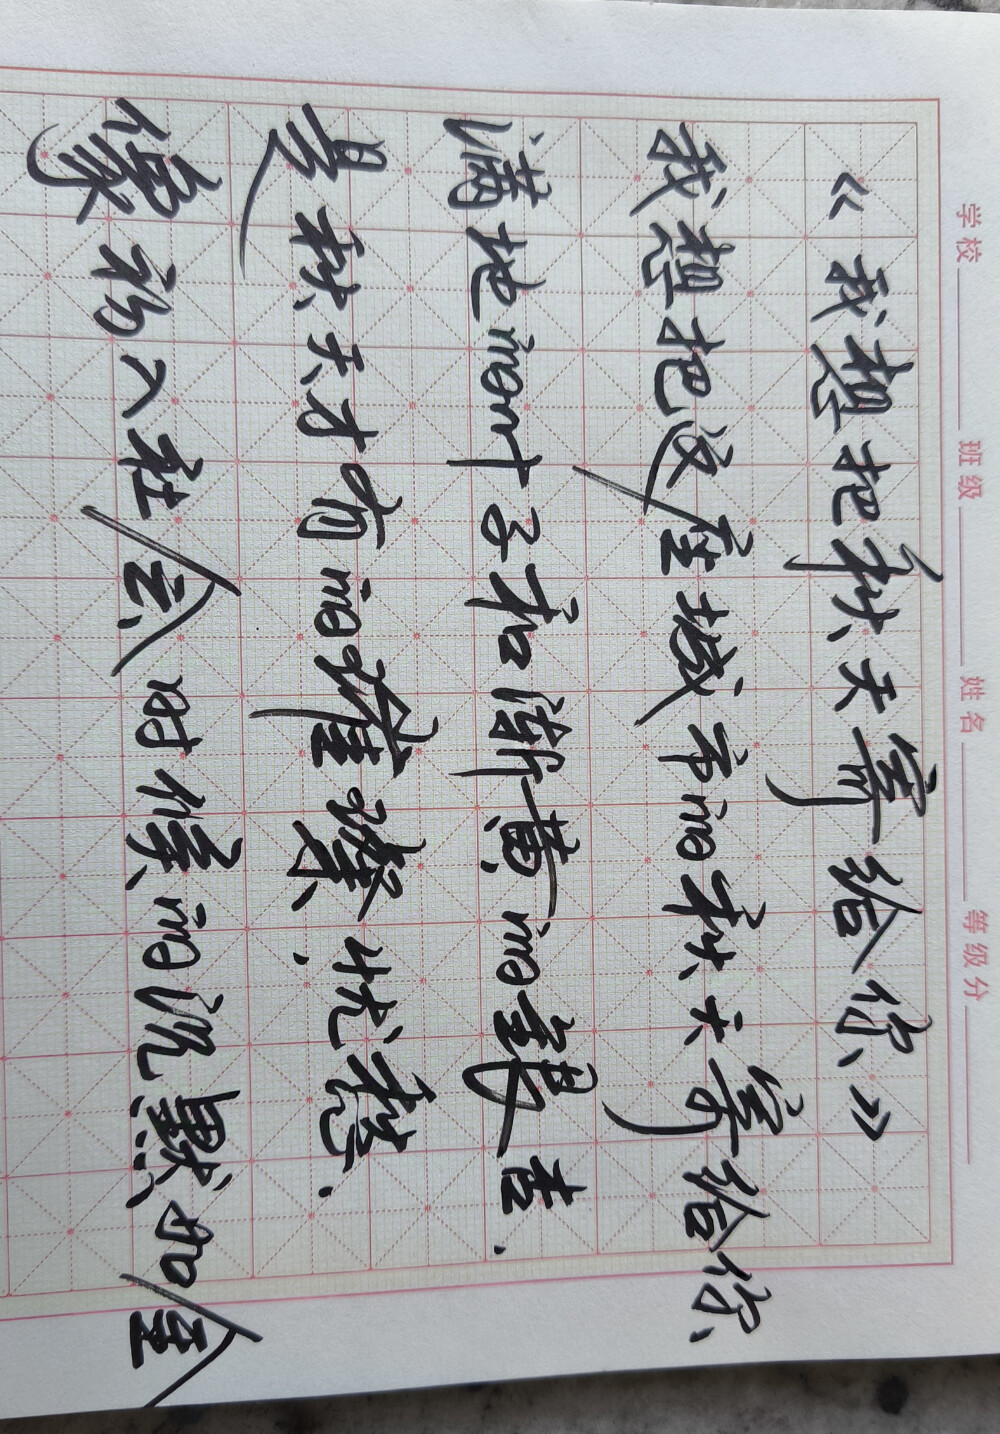 学校 班级 姓名 等级分
《我想把秋天寄给你》
我想把这座城市的秋天寄给你
满地的叶子和渐黄的银杏.
是秋天才有的璀璨.忧愁.
像初入社会时候的沉默如金